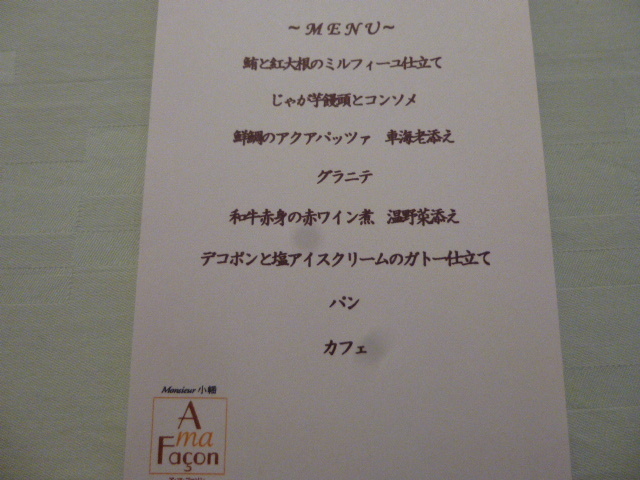 ~MENU~
鮪と紅大根のミルフィーユ仕立て
じゃが芋饅頭とコンソメ
鮮鯛のアクアパッツァ 車海老添え
グラニテ
和牛赤身の赤ワイン煮 温野菜添え
デコポンと塩アイスクリームのガトー仕立て
パン
カフェ
Monsieur 小幡
A
ma
Façon